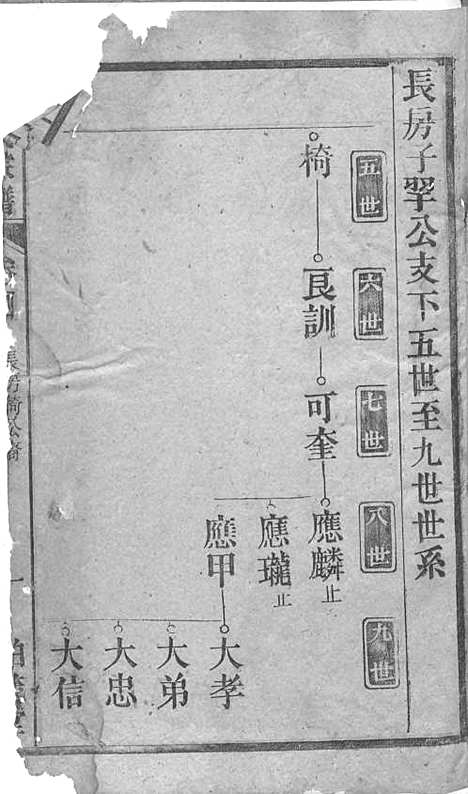 長房子罕公支下五世至九世世系
五世
六世
七世
八世
九世
椅
良訓
可奎
應麟止
應瓏止
應甲
大孝
大弟
大忠
大信
譜
長房椅公裔
一